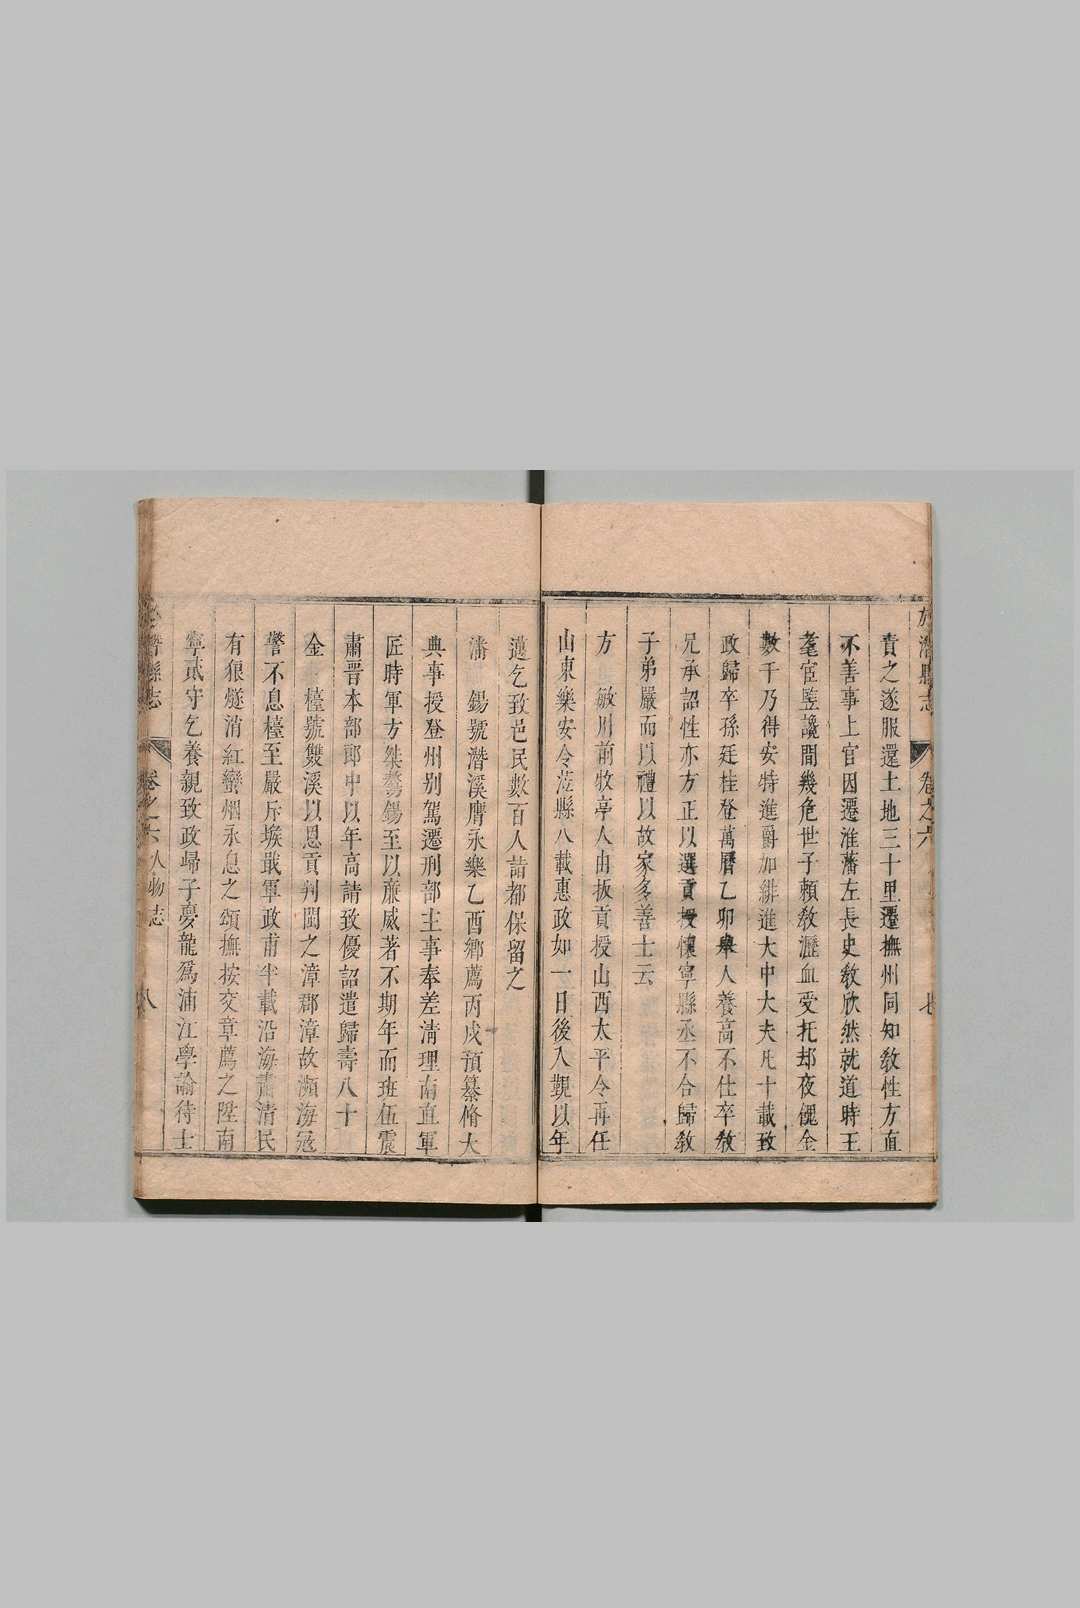 於潛縣志
卷之六
七
責之遂服還土地三十里遷撫州同知敎性方直
不善事上官因遷淮藩左長史敎欣然就道時王
耄宦豎讒間幾危世子賴敎瀝血受托却夜俚金
數千乃得安特進爵加緋進大中大夫凡十載致
政歸卒孫廷桂登萬曆乙卯舉人養高不仕卒敎
兄承詔性亦方正以選貢授懷寧縣丞不合歸敎
子弟嚴而以禮以故家多善士云
方 敏川前牧亭人由拔貢授山西太平令再任
山東樂安令蒞縣八載惠政如一日後入覲以年
邁乞致邑民數百人詣都保留之
潘 錫號潛溪膺永樂乙酉鄉薦丙戌預纂脩大
典事授登州别駕遷刑部主事奉差清理南直軍
匠時軍方桀驁錫至以亷威著不期年而班伍震
肅晋本部郎中以年高請致優詔遣歸壽八十
金 檯號雙溪以恩貢判閩之漳郡漳故瀕海冦
警不息檯至嚴斥堠戢軍政甫半載沿海肅清民
有狼燧消紅蠻烟永息之頌撫按交章薦之陞南
寧貳守乞養親致政歸子夢龍爲浦江學諭待士
潛縣志
卷之六人物志
八